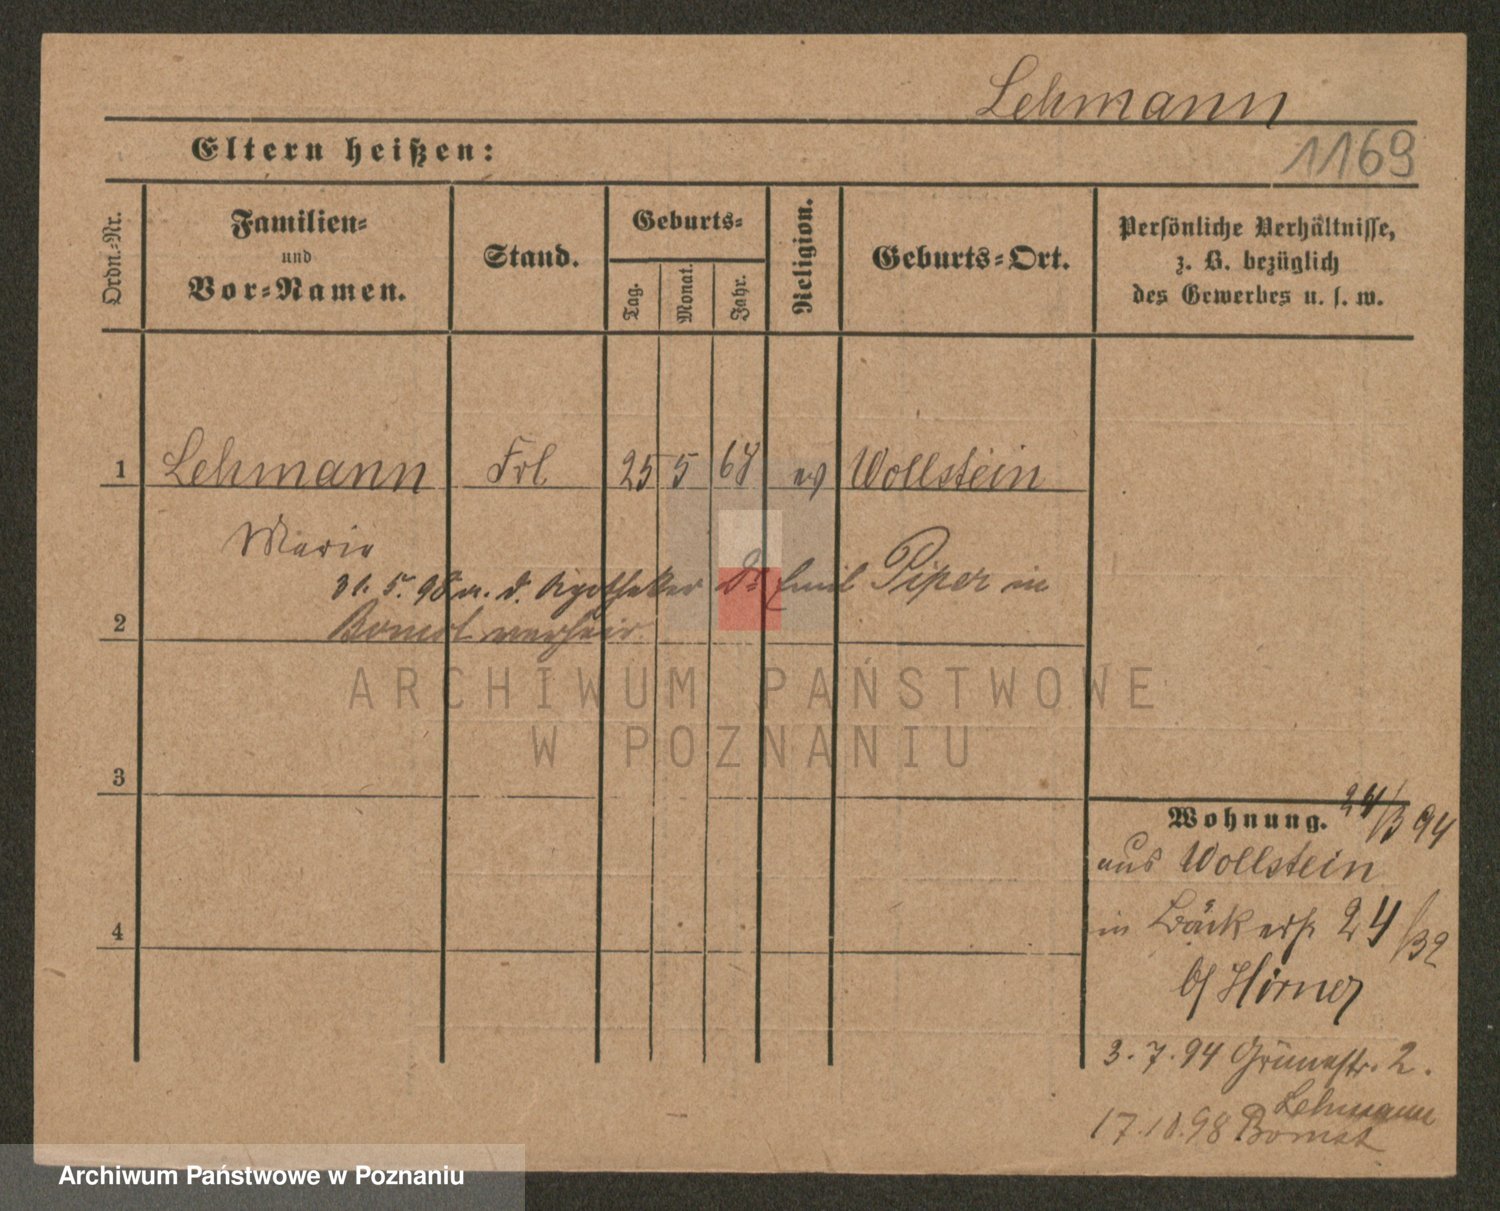 Lehmann
Eltern heißen:
1169
Ordn.-Nr.
Familien-
und
Vor-Namen.
Stand.
Geburts-
Tag.
Monat.
Jahr.
Religion.
Geburts-Ort.
Persönliche Verhältnisse,
z. B. bezüglich
des Gewerbes u. s. w.
1 Lehmann Frl. 25 5 68 ev Wollstein
Marie
31. 5. 98 m. d. Apotheker Dr Emil Piper in
2 Bomst verheir.
ARCHIWUM PAŃSTWOWE
W POZNANIU
3
Wohnung. 24/3 94
aus Wollstein
4
in Bäckerstr 24/32
b/ Hirner
3. 7. 94 Grünestr. 2.
Lehmann
17.10.98 Bomst
Archiwum Państwowe w Poznaniu